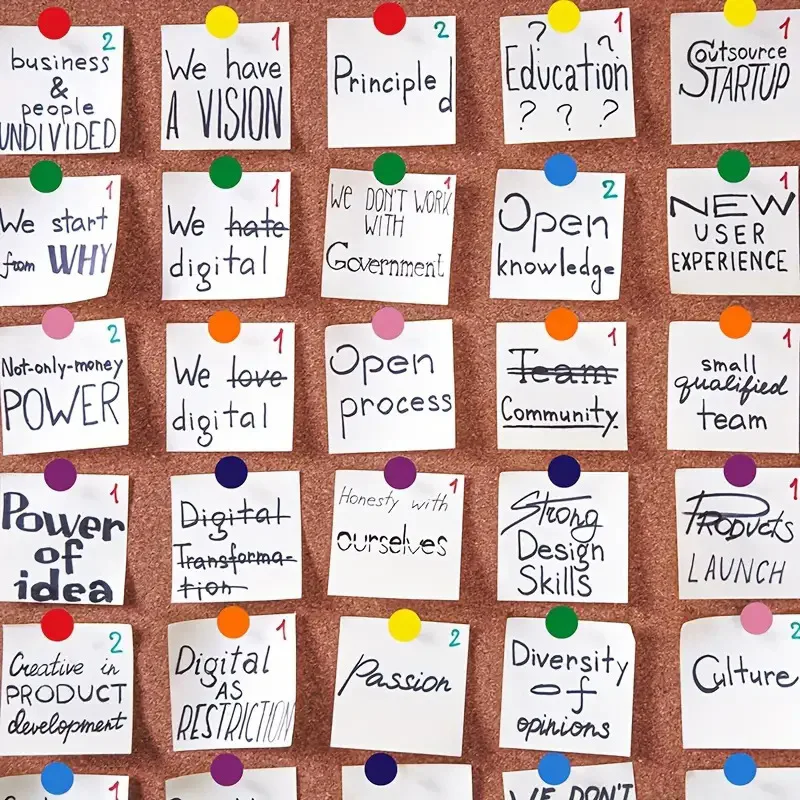 2
business
&
people
UNDIVIDED
1
We have
A VISION
2
Principled
1
? ?
Education
? ? ?
1
Outsource
STARTUP
1
We start
from WHY
1
We hate
digital
1
WE DON'T WORK
WITH
Government
2
Open
knowledge
1
NEW
USER
EXPERIENCE
2
Not-only-money
POWER
1
We love
digital
Open
process
1
Team
Community.
1
small
qualified
team
1
Power
of
idea
Digital
Transforma-
tion
1
Honesty with
ourselves
Strong
Design
Skills
1
Products
LAUNCH
2
Creative in
PRODUCT
development
1
Digital
AS
RESTRICTION
2
Passion
Diversity
of
opinions
2
Culture
1
2
WE DON'T